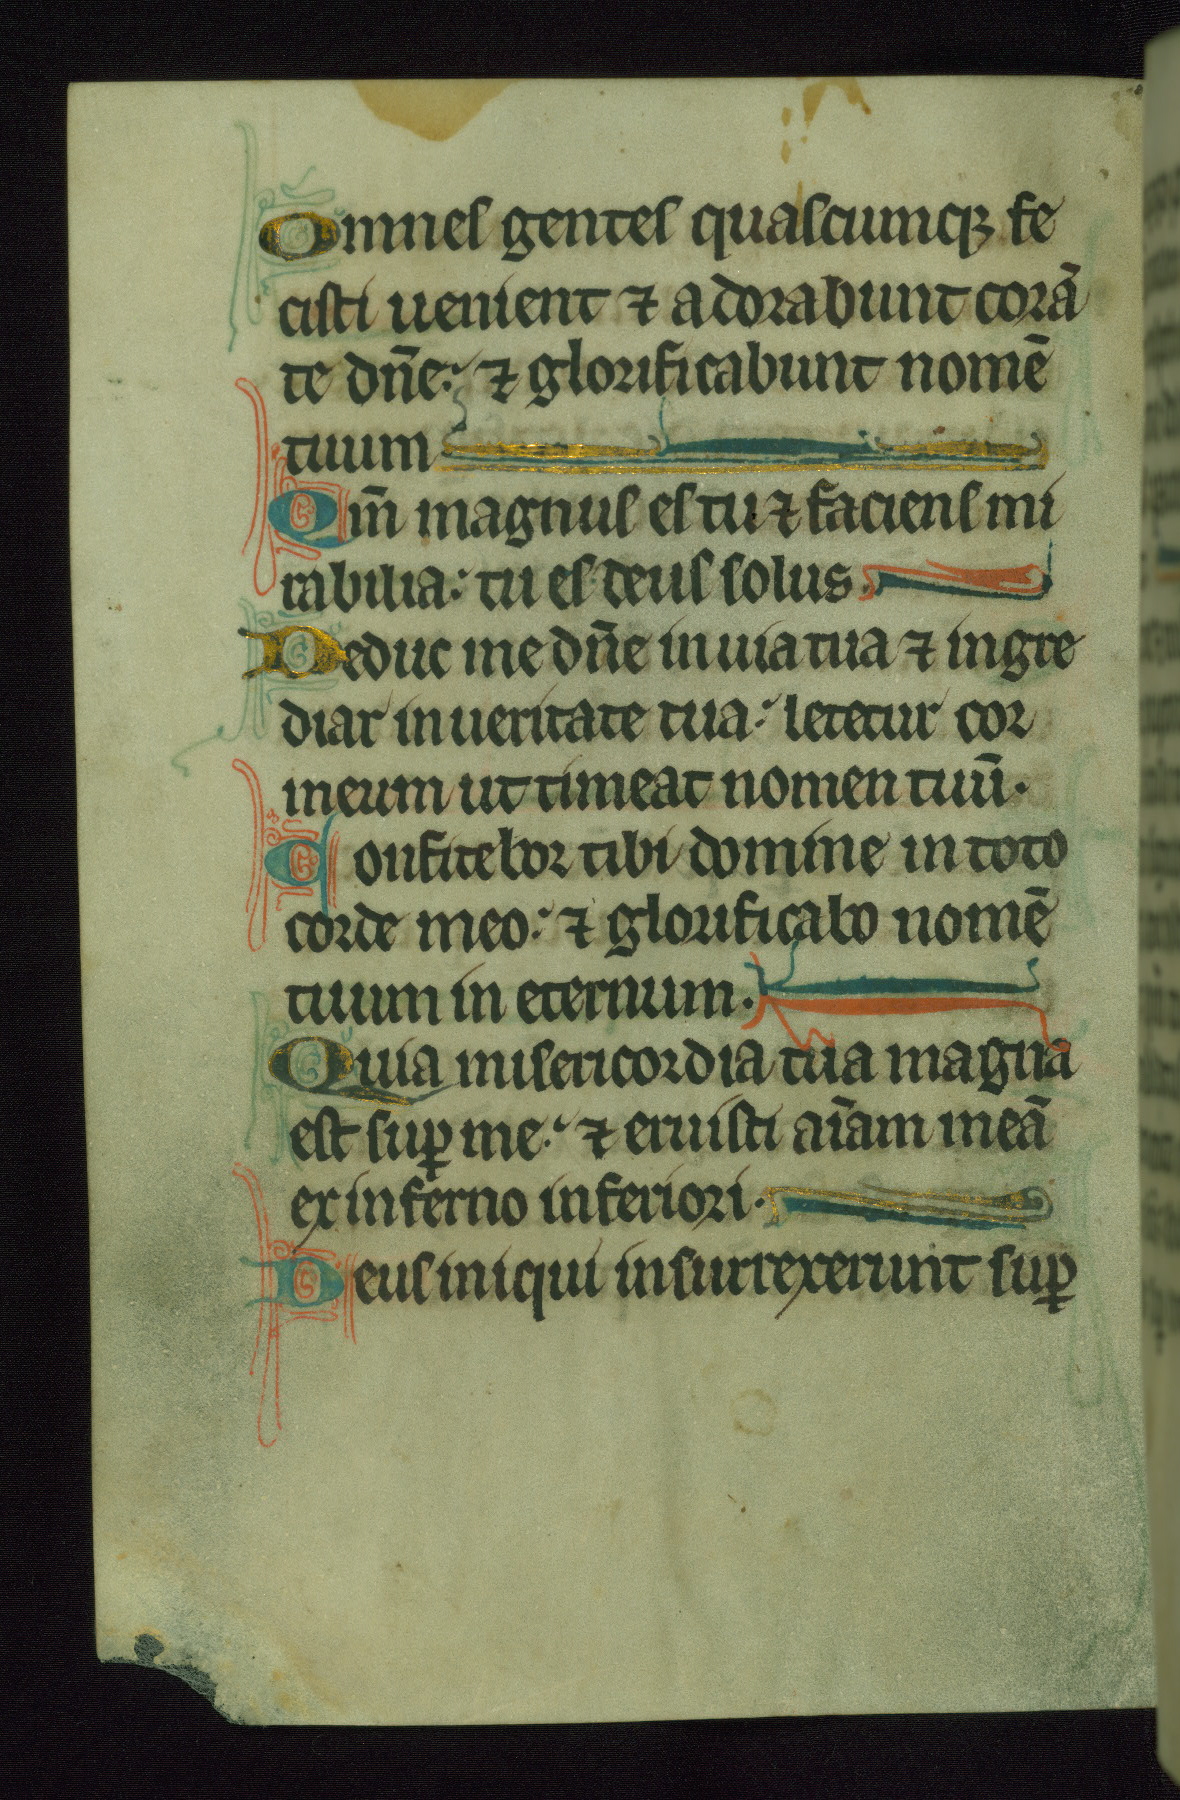 Omnes gentes quascumqꝫ fe
cisti uenient ⁊ adorabunt corā
te dn̄e: ⁊ glorificabunt nomē
tuum
Qm̄ magnus es tu ⁊ faciens mi
rabilia: tu es deus solus.
Deduc me dn̄e in uia tua ⁊ ingre
diar in ueritate tua: letetur cor
meum ut timeat nomen tuū.
Confitebor tibi domine in toto
corde meo: ⁊ glorificabo nomē
tuum in eternum.
Quia misericordia tua magna
est suꝑ me: ⁊ eruisti aīam meā
ex inferno inferiori.
Deus iniqui insurrexerunt suꝑ